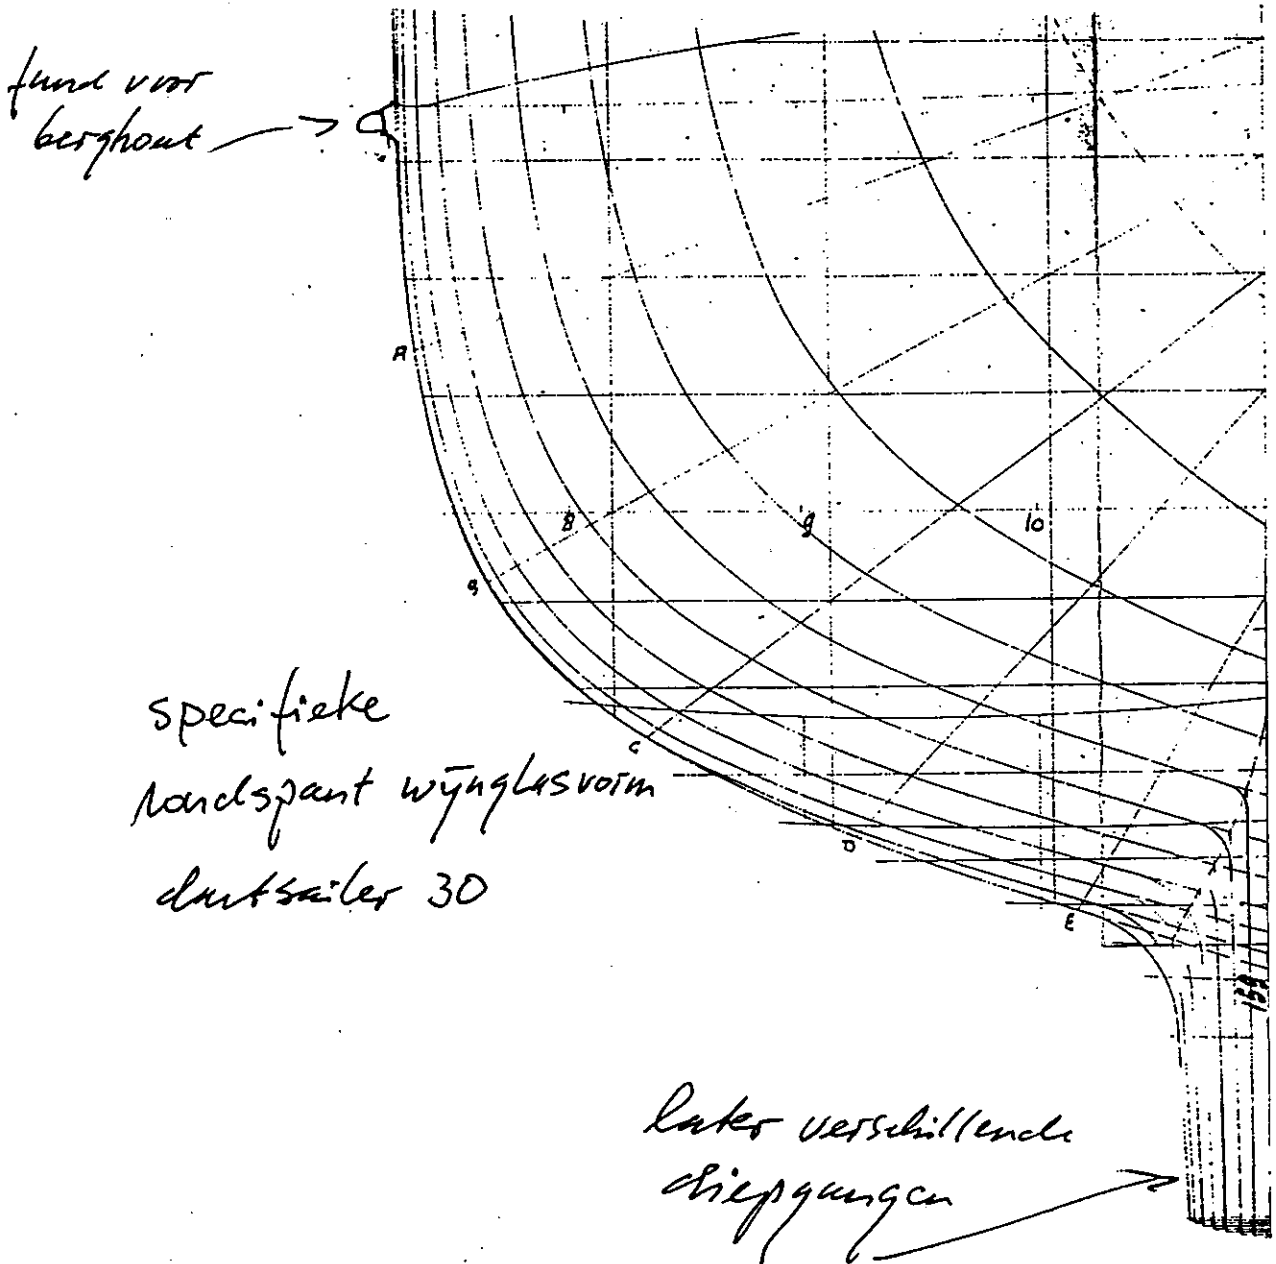 fund voor
berghout
A
8
9
10
B
specifieke
C
rondspant wijnglasvorm
D
dartsailer 30
E
139
later verschillende
diepgangen